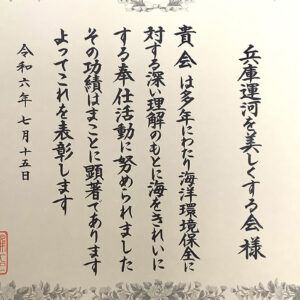 兵庫運河を美しくする会様
貴会は多年にわたり海洋環境保全に
対する深い理解のもとに海をきれいに
する奉仕活動に努められました
その功績はまことに顕著であります
よってこれを表彰します
令和六年七月十五日